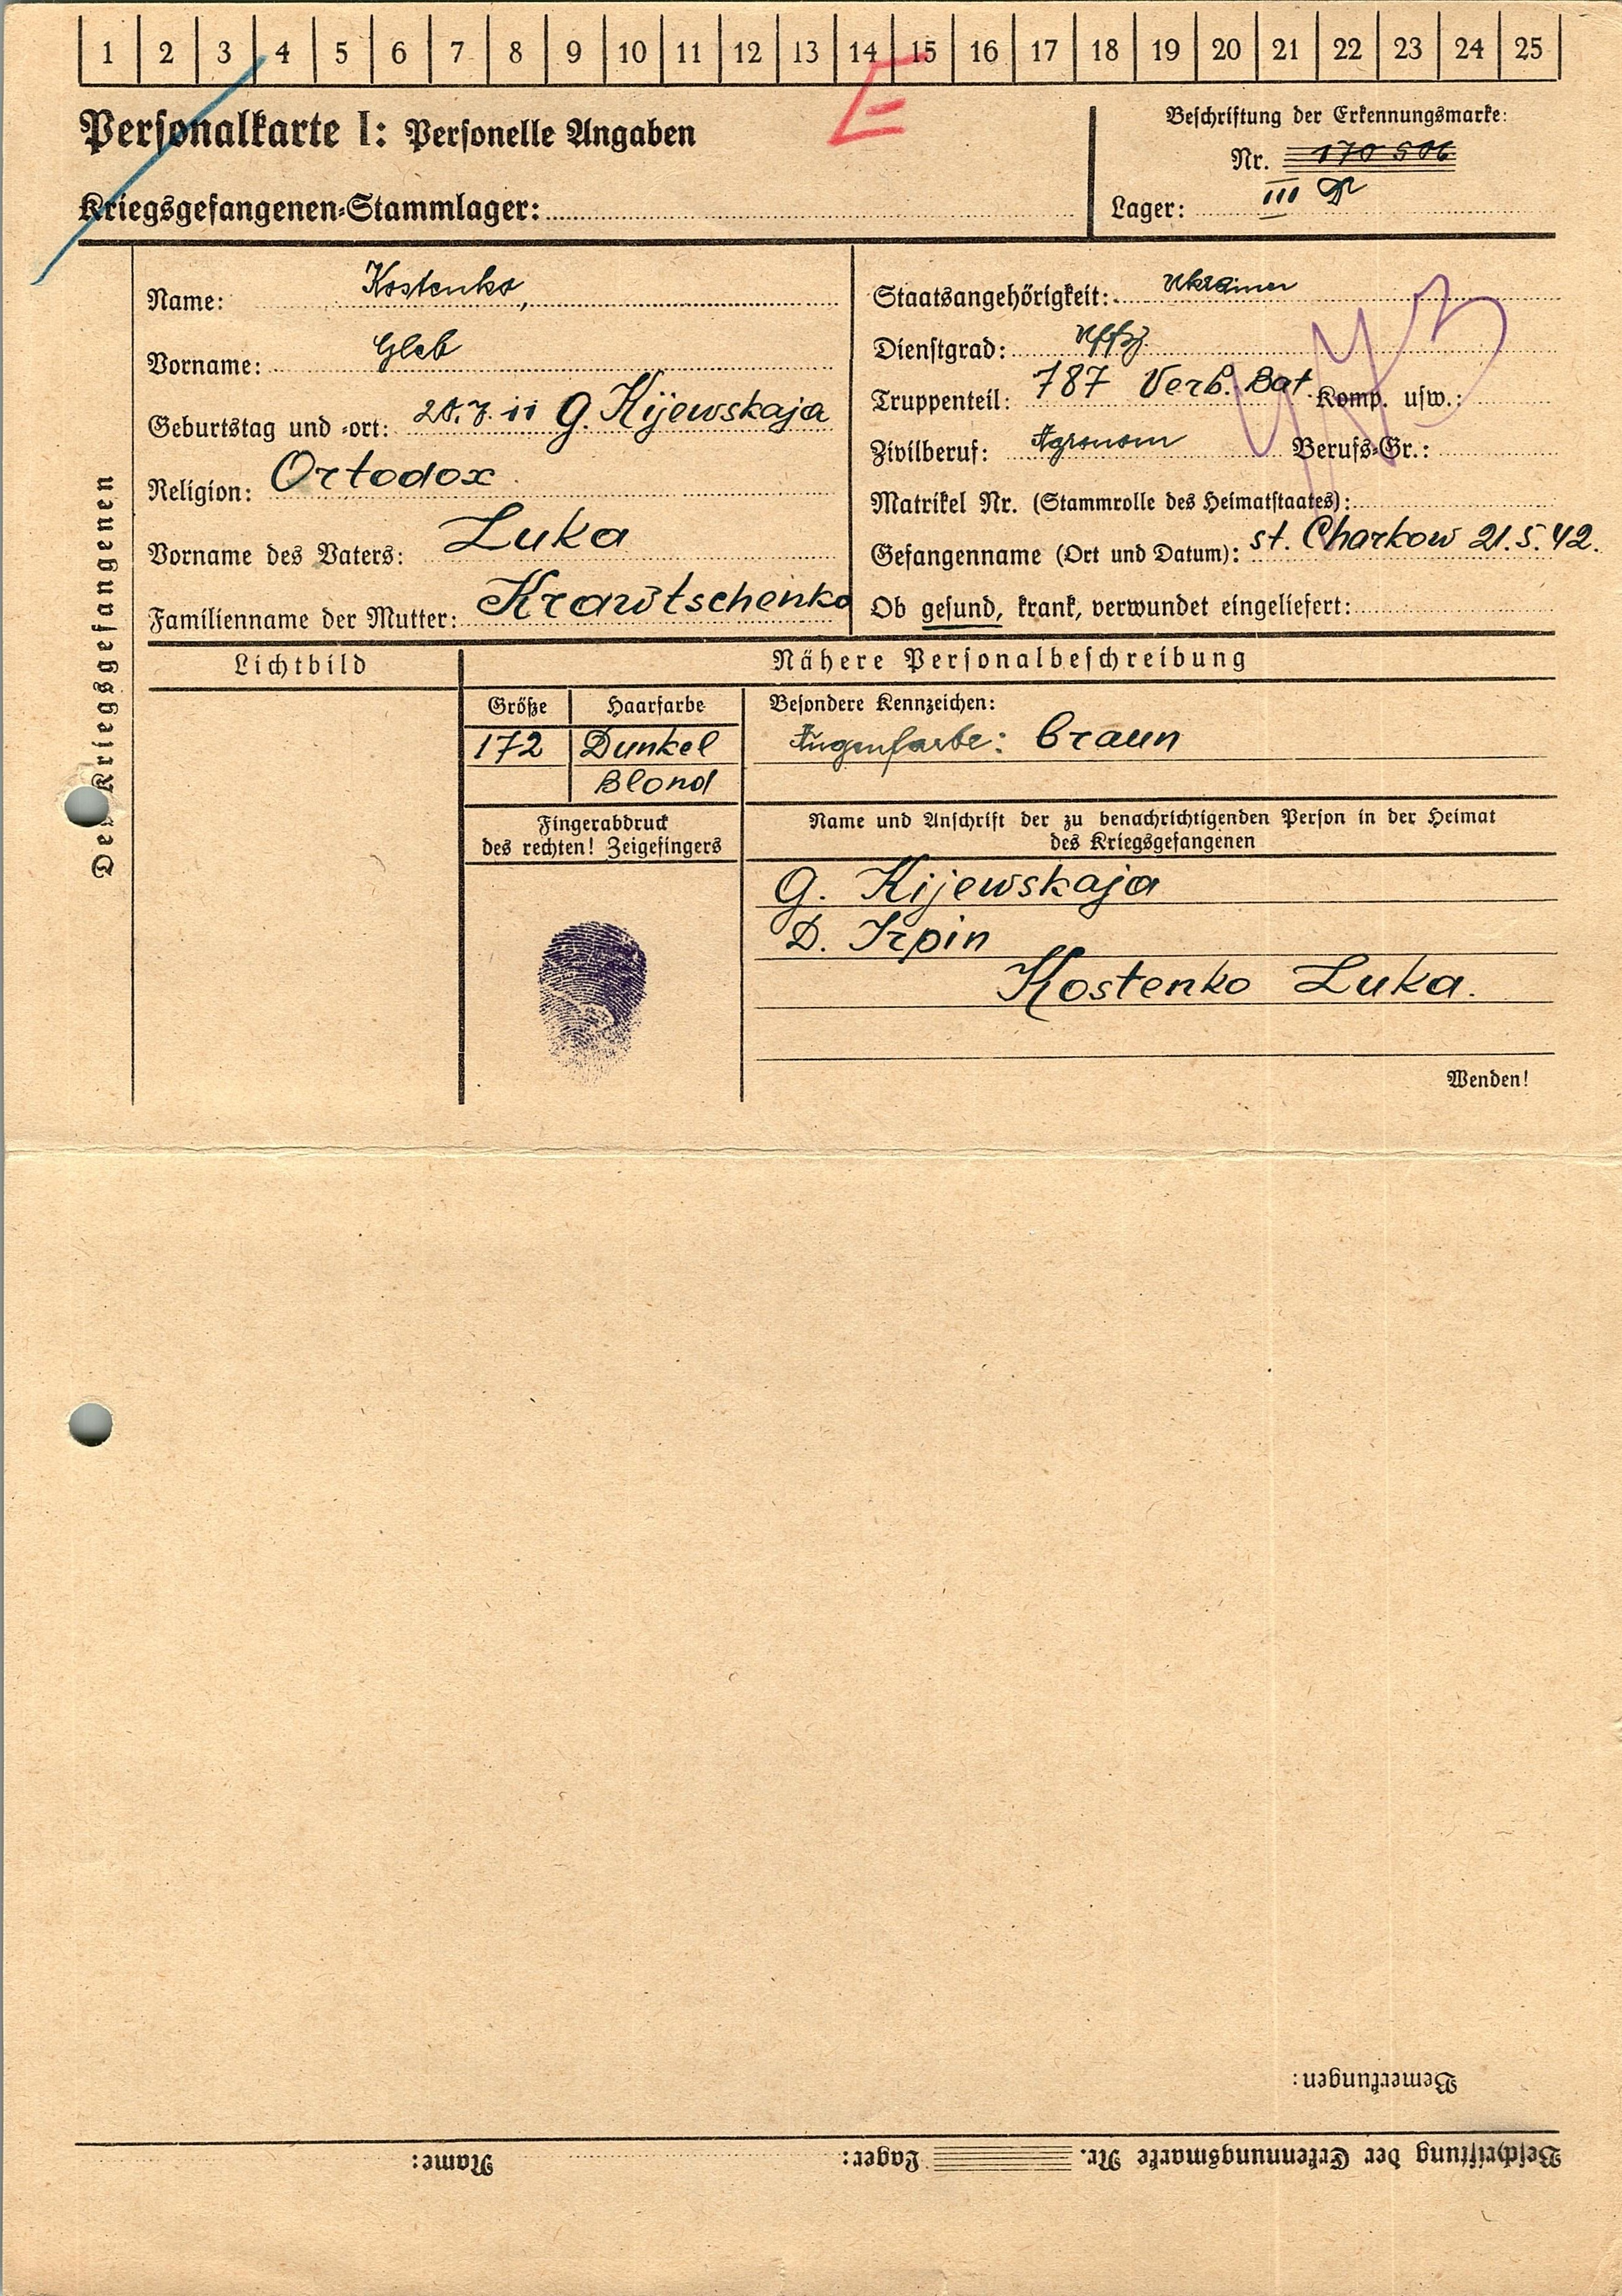 1 2 3 4 5 6 7 8 9 10 11 12 13 14 15 16 17 18 19 20 21 22 23 24 25
E
Personalkarte I: Personelle Angaben
Kriegsgefangenen-Stammlager:
Beschriftung der Erkennungsmarke:
Nr. 170 506
Lager: III D
Des Kriegsgefangenen
Name: Kostenko,
Vorname: Gleb
Geburtstag und -ort: 20.7.11 G. Kijewskaja
Religion: Ortodox
Vorname des Vaters: Luka
Familienname der Mutter: Krawtschenko
Staatsangehörigkeit: Ukrainer
Dienstgrad: Uffz.
Truppenteil: 787 Verb. Bat. Komp. usw.:
Zivilberuf: Agronom Berufs-Gr.:
Matrikel Nr. (Stammrolle des Heimatstaates):
Gefangenname (Ort und Datum): st. Charkow 21.5.42.
Ob gesund, krank, verwundet eingeliefert:
Lichtbild
Nähere Personalbeschreibung
Größe Haarfarbe
172 Dunkel
Blond
Besondere Kennzeichen:
Augenfarbe: braun
Fingerabdruck
des rechten! Zeigefingers
Name und Anschrift der zu benachrichtigenden Person in der Heimat
des Kriegsgefangenen
G. Kijewskaja
D. Irpin
Kostenko Luka.
Wenden!
Bemerkungen:
Beschriftung der Erkennungsmarke Nr. Lager: Name: